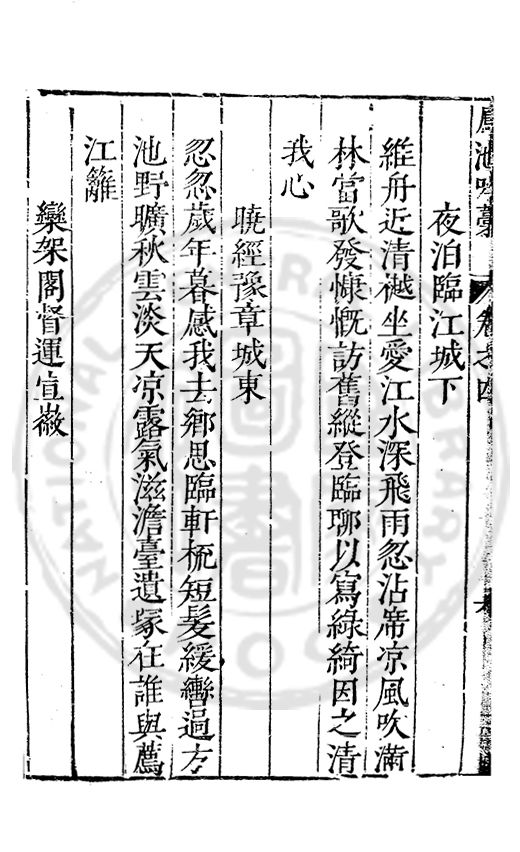 鳳池吟藁 卷之四
夜泊臨江城下
維舟近清樾坐愛江水深飛雨忽沾席凉風吹滿
林當歌發慷慨訪舊縱登臨聊以寫綠綺因之清
我心
曉經豫章城東
忽忽歲年暮感我去鄉思臨軒梳短髮緩轡過方
池野曠秋雲淡天凉露氣滋澹臺遺塚在誰與薦
江籬
欒架閣督運宣徽